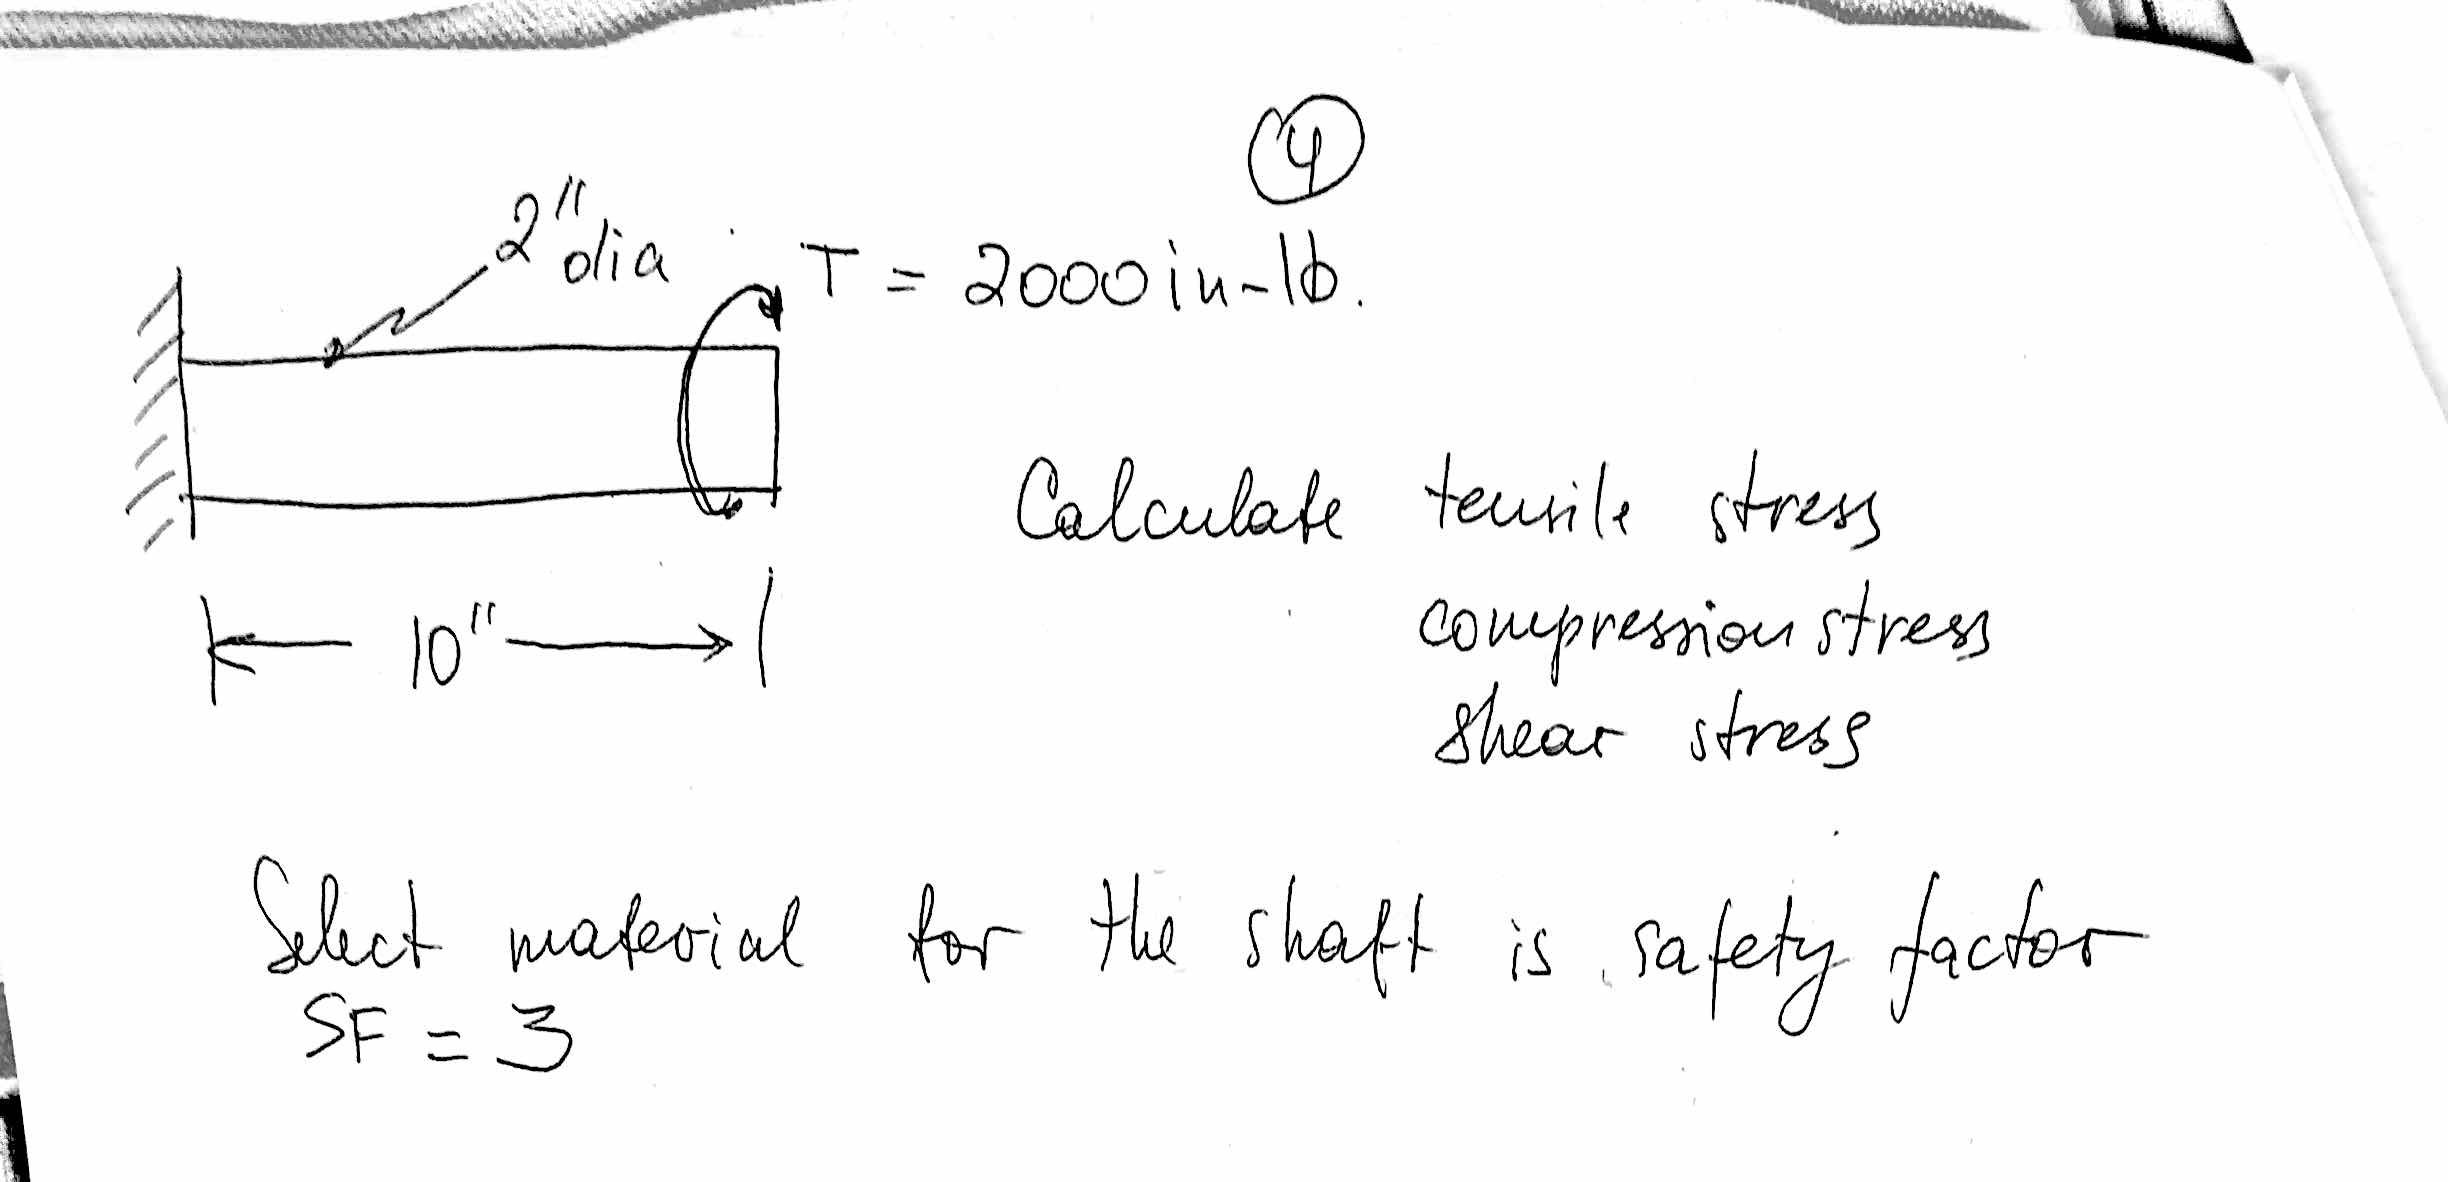 4
2" dia
T = 2000 in-lb.
10"
Calculate tensile stress
compression stress
shear stress
Select material for the shaft is safety factor
SF = 3